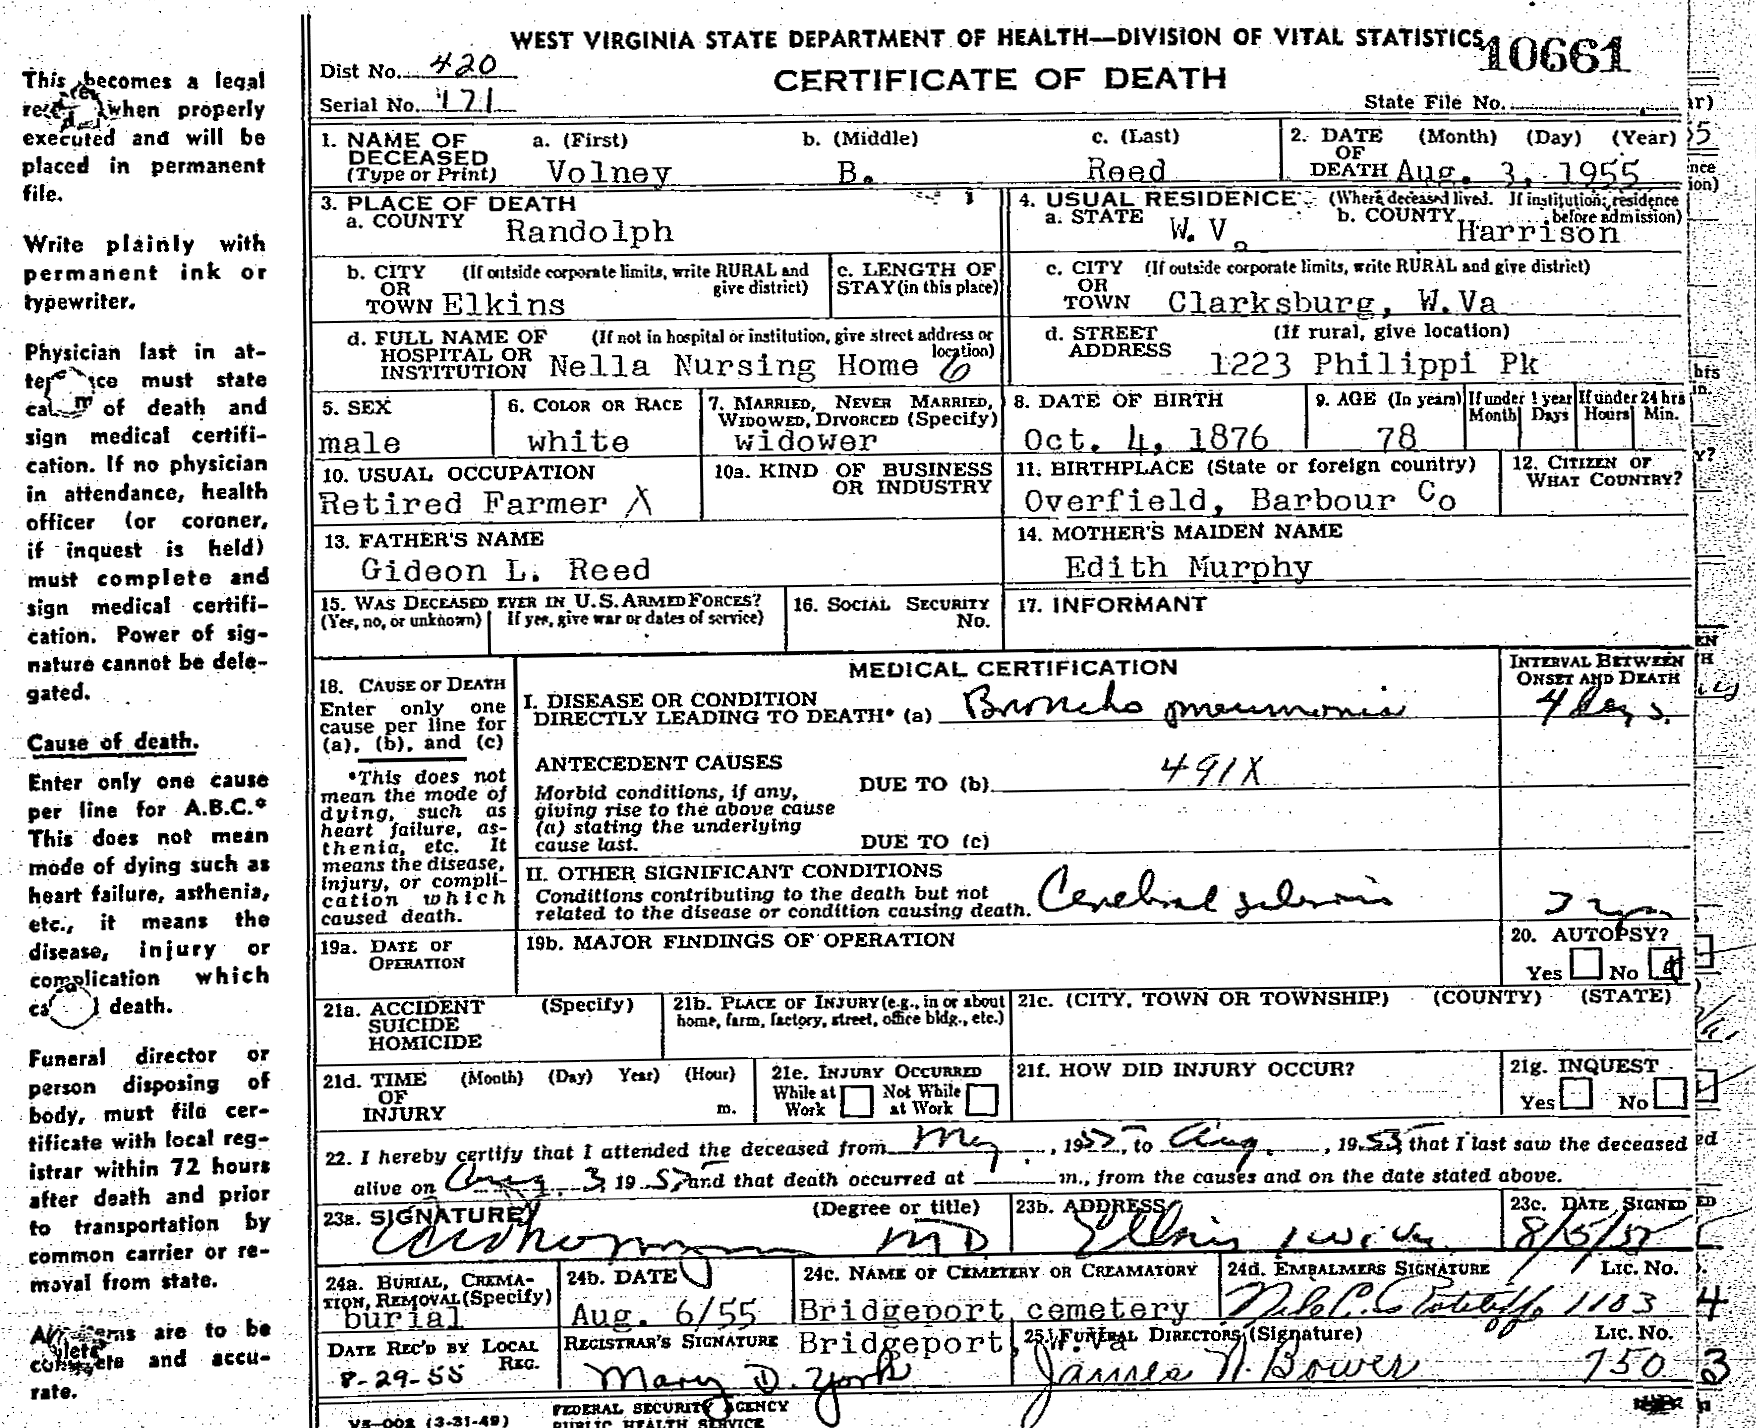 This becomes a legal
when properly
executed and will be
placed in permanent
file.
Write plainly with
permanent ink or
typewriter.
Physician last in at-
must state
of death and
sign medical certifi-
cation. If no physician
in attendance, health
officer (or coroner,
if inquest is held)
must complete and
sign medical certifi-
cation. Power of sig-
nature cannot be dele-
gated.
Cause of death.
Enter only one cause
per line for A.B.C.*
This does not mean
mode of dying such as
heart failure, asthenia,
etc., it means the
disease, injury or
complication which
death.
Funeral director or
person disposing of
body, must file cer-
tificate with local reg-
istrar within 72 hours
after death and prior
to transportation by
common carrier or re-
moval from state.
are to be
and accu-
rate.
WEST VIRGINIA STATE DEPARTMENT OF HEALTH—DIVISION OF VITAL STATISTICS
10661
Dist No. 420
CERTIFICATE OF DEATH
Serial No. 171
State File No.
1. NAME OF DECEASED (Type or Print) a. (First) b. (Middle) c. (Last)
Volney B. Reed
2. DATE OF DEATH (Month) (Day) (Year)
Aug. 3, 1955
3. PLACE OF DEATH
a. COUNTY Randolph
4. USUAL RESIDENCE (Where deceased lived. If institution; residence before admission)
a. STATE W. Va b. COUNTY Harrison
b. CITY OR TOWN (If outside corporate limits, write RURAL and give district)
Elkins
c. LENGTH OF STAY (in this place)
c. CITY OR TOWN (If outside corporate limits, write RURAL and give district)
Clarksburg, W.Va
d. FULL NAME OF HOSPITAL OR INSTITUTION (If not in hospital or institution, give street address or location)
Nella Nursing Home 6
d. STREET ADDRESS (if rural, give location)
1223 Philippi Pk
5. SEX
male
6. COLOR OR RACE
white
7. MARRIED, NEVER MARRIED, WIDOWED, DIVORCED (Specify)
widower
8. DATE OF BIRTH
Oct. 4, 1876
9. AGE (In years)
78
If under 1 year
Month Days
If under 24 hrs
Hours Min.
10. USUAL OCCUPATION
Retired Farmer X
10a. KIND OF BUSINESS OR INDUSTRY
11. BIRTHPLACE (State or foreign country)
Overfield, Barbour Co
12. CITIZEN OF WHAT COUNTRY?
13. FATHER'S NAME
Gideon L. Reed
14. MOTHER'S MAIDEN NAME
Edith Murphy
15. WAS DECEASED EVER IN U.S. ARMED FORCES?
(Yes, no, or unknown) If yes, give war or dates of service)
16. SOCIAL SECURITY No.
17. INFORMANT
18. CAUSE OF DEATH
Enter only one
cause per line for
(a), (b), and (c)
*This does not
mean the mode of
dying, such as
heart failure, as-
thenia, etc. It
means the disease,
injury, or compli-
cation which
caused death.
MEDICAL CERTIFICATION
INTERVAL BETWEEN ONSET AND DEATH
I. DISEASE OR CONDITION
DIRECTLY LEADING TO DEATH* (a) Broncho pneumonia 4 days.
ANTECEDENT CAUSES
Morbid conditions, if any,
giving rise to the above cause
(a) stating the underlying
cause last.
DUE TO (b) 491X
DUE TO (c)
II. OTHER SIGNIFICANT CONDITIONS
Conditions contributing to the death but not
related to the disease or condition causing death.
Cerebral sclerosis
19a. DATE OF OPERATION
19b. MAJOR FINDINGS OF OPERATION
20. AUTOPSY?
Yes No
21a. ACCIDENT SUICIDE HOMICIDE (Specify)
21b. PLACE OF INJURY (e.g., in or about home, farm, factory, street, office bldg., etc.)
21c. (CITY, TOWN OR TOWNSHIP) (COUNTY) (STATE)
21d. TIME OF INJURY (Month) (Day) Year) (Hour) m.
21e. INJURY OCCURRED
While at Work Not While at Work
21f. HOW DID INJURY OCCUR?
21g. INQUEST
Yes No
22. I hereby certify that I attended the deceased from May, 1955, to Aug., 1955 that I last saw the deceased
alive on Aug. 3, 1955 and that death occurred at m., from the causes and on the date stated above.
23a. SIGNATURE (Degree or title)
MD
23b. ADDRESS
Elkins W.Va.
23c. DATE SIGNED
24a. BURIAL, CREMA-
TION, REMOVAL (Specify)
burial
24b. DATE
Aug. 6/55
24c. NAME OF CEMETERY OR CREAMATORY
Bridgeport cemetery
Bridgeport, W.Va
24d. EMBALMERS SIGNATURE Lic. No.
1103
4
DATE REC'D BY LOCAL REG.
8-29-55
REGISTRAR'S SIGNATURE
Mary D. York
25. FUNERAL DIRECTORS (Signature) Lic. No.
James N. Bower 750
3
VS-002 (3-31-49)
FEDERAL SECURITY AGENCY
PUBLIC HEALTH SERVICE